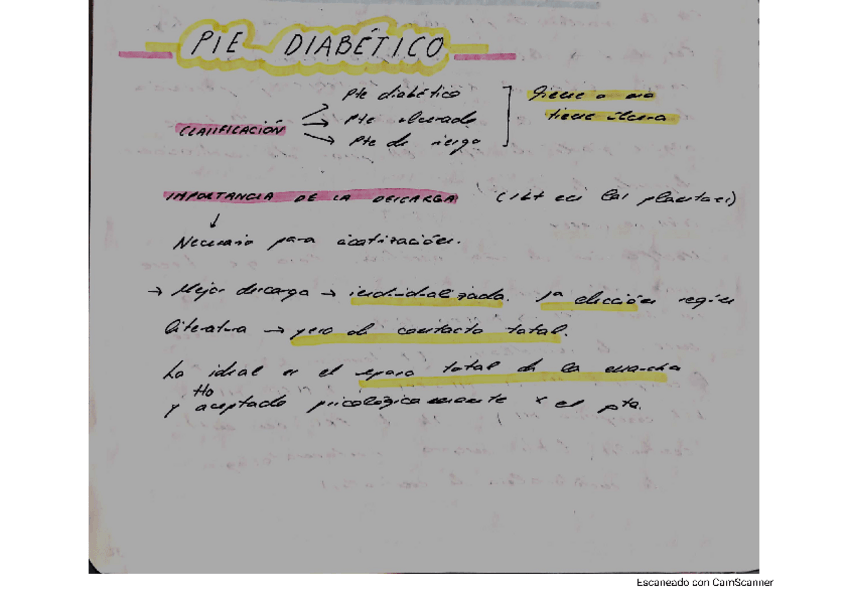 PIE DIABÉTICO
CLASIFICACIÓN
Pte diabético
Pte ulcerado
Pte de riesgo
Tiene o no
tiene úlcera
IMPORTANCIA DE LA DESCARGA (sbt en las plantas)
↓
Necesario para cicatrización.
→ Mejor descarga → individualizada. 1ª elección según
literatura → yeso de contacto total.
Lo ideal es el reposo total de la marcha
tto
y aceptado psicológicamente x el pte.
Escaneado con CamScanner